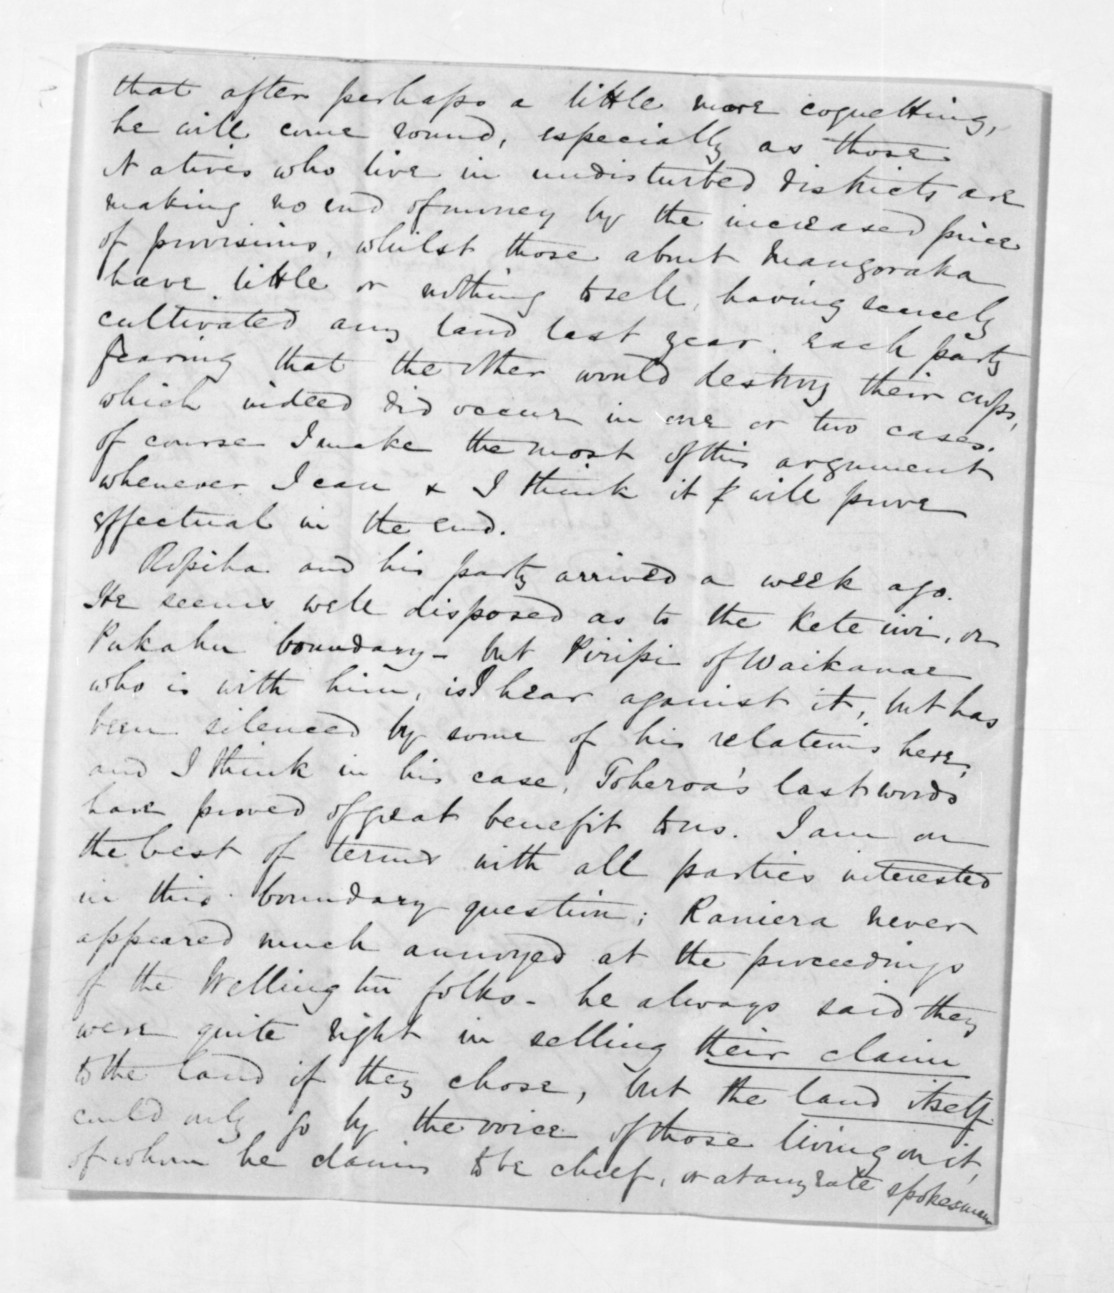 that after perhaps a little more coquetting,
he will come round, especially as those
Natives who live in undisturbed districts are
making no end of money by the increased price
of provisions, whilst those about Mangoraka
have little or nothing to sell, having scarcely
cultivated any land last year. Each party
fearing that the other would destroy their crops,
which indeed did occur in one or two cases.
of course I make the most of this argument
whenever I can & I think it will prove
effectual in the end.
Ropiha and his party arrived a week ago.
He seems well disposed as to the Kete iwi, or
Pukahu boundary - but Piripi of Waikanae
who is with him, is I hear against it, but has
been silenced by some of his relations here,
and I think in his case, Toheroa's last words
have proved of great benefit to us. I am on
the best of terms with all parties interested
in this boundary question; Raniera never
appeared much annoyed at the proceedings
of the Wellington folks - he always said they
were quite right in selling their claim
to the land if they chose, but the land itself
could only go by the voice of those living on it,
of whom he claims to be chief, or at any rate spokesman